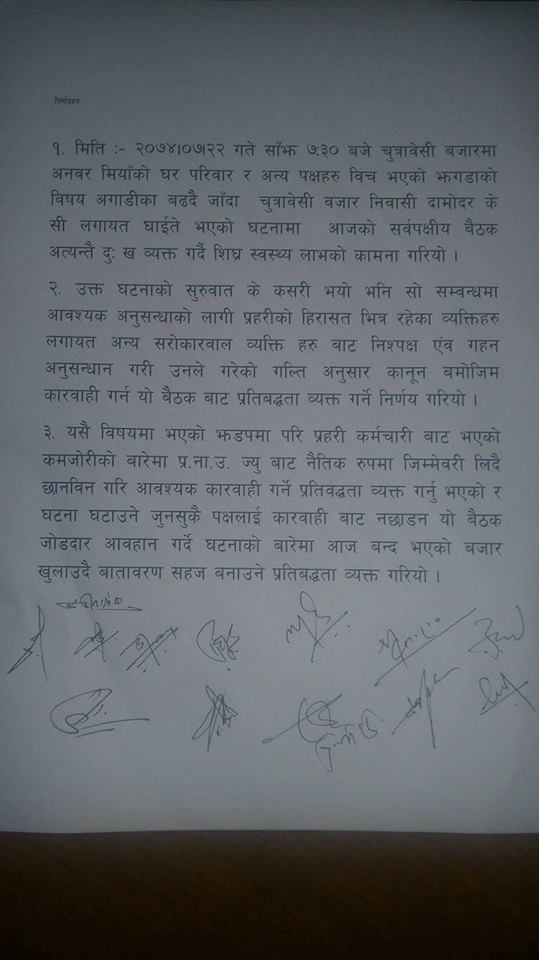 निर्णयहरु
१. मिति :- २०७४।०७।२२ गते साँझ ७:३० बजे चुत्रावेसी बजारमा
अनवर मियाँको घर परिवार र अन्य पक्षहरु विच भएको झगडाको
विषय अगाडीका बढदै जाँदा चुत्रावेसी वजार निवासी दामोदर के
सी लगायत घाईते भएको घटनामा आजको सर्वपक्षीय बैठक
अत्यन्तै दुः ख व्यक्त गर्दै शिघ्र स्वस्थ्य लाभको कामना गरियो ।
२. उक्त घटनाको सुरुवात के कसरी भयो भनि सो सम्वन्धमा
आवश्यक अनुसन्धाको लागी प्रहरीको हिरासत भित्र रहेका व्यक्तिहरु
लगायत अन्य सरोकारवाल व्यक्ति हरु बाट निश्पक्ष एंव गहन
अनुसन्धान गरी उनले गरेको गल्ति अनुसार कानून बमोजिम
कारवाही गर्न यो बैठक बाट प्रतिबद्धता व्यक्त गर्ने निर्णय गरियो ।
३. यसै विषयमा भएको झडपमा परि प्रहरी कर्मचारी बाट भएको
कमजोरीको बारेमा प्र.ना.उ. ज्यु बाट नैतिक रुपमा जिम्मेवरी लिदै
छानविन गरि आवश्यक कारवाही गर्ने प्रतिवद्धता व्यक्त गर्नु भएको र
घटना घटाउने जुनसुकै पक्षलाई कारवाही बाट नछाडन यो बेठक
जोडदार आवहान गर्दे घटनाको बारेमा आज बन्द भएको बजार
खुलाउदै बातावरण सहज बनाउने प्रतिबद्धता व्यक्त गरियो ।